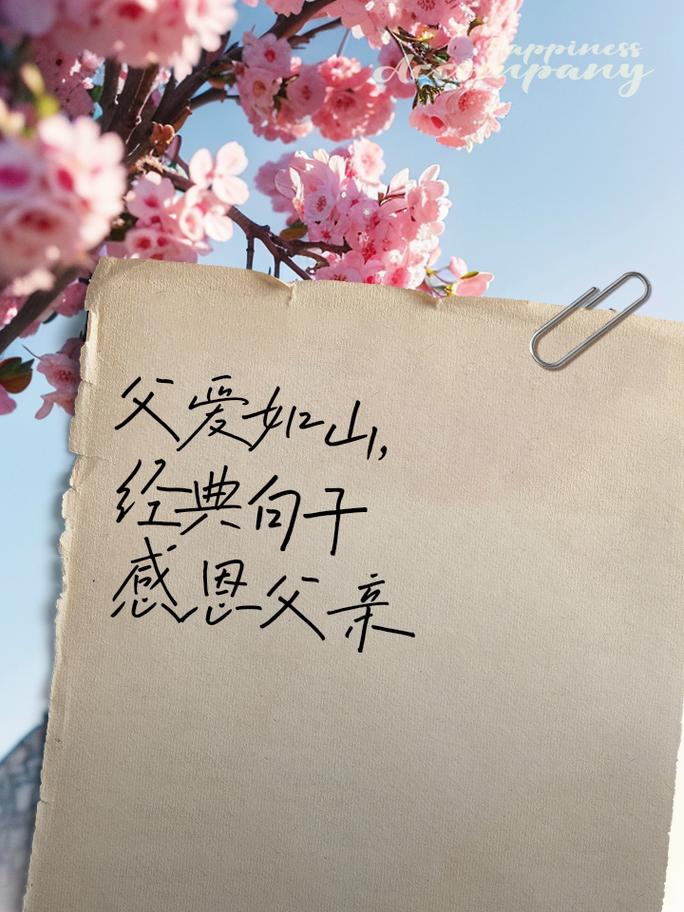 Happiness
Accompany
父爱如山,
经典句子
感恩父亲